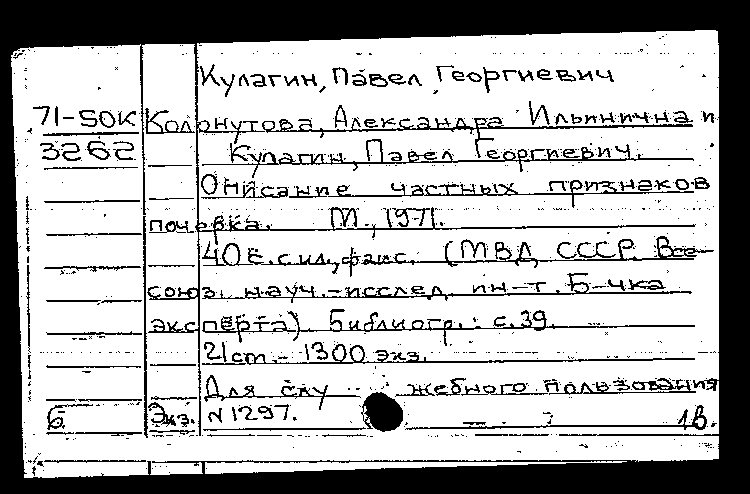 Кулагин, Павел Георгиевич
71-50К Колонутова, Александра Ильинична и
3262 Кулагин, Павел Георгиевич.
Описание частных признаков
почерка. М., 1971.
40 с. с ил., факс. (МВД СССР. Все-
союз. науч.-исслед. ин-т. Б-чка
эксперта). Библиогр.: с. 39.
21 см. - 1300 экз.
Для слу жебного пользования
б Экз. N 1297. 1В.